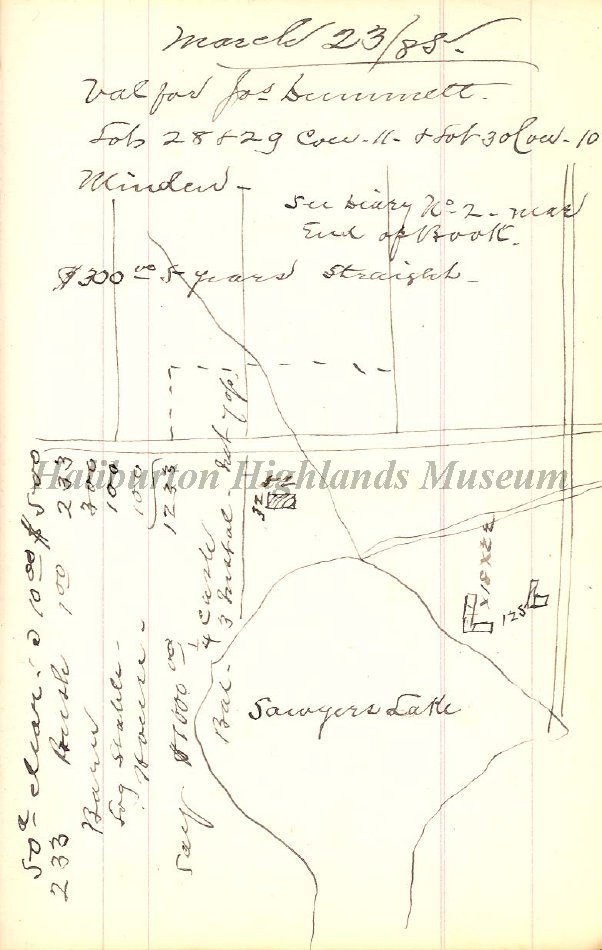 March 23/85.
Val for Jos Dummett.
Lots 28 & 29 Con. 11. & Lot 30 Con. 10
Minden -
See Diary No. 2 - near
End of Book.
$300 00 5 years straight -
Haliburton Highlands Museum
50 a clear. @ 10 00 $ 500
233 Bush 1 00 233
Barn 300
Log Stable - 100
House - 100
1233
Say $1000 00
1/4 Cash
Bal - 3
32
18 x 22
125
Sawyers Lake